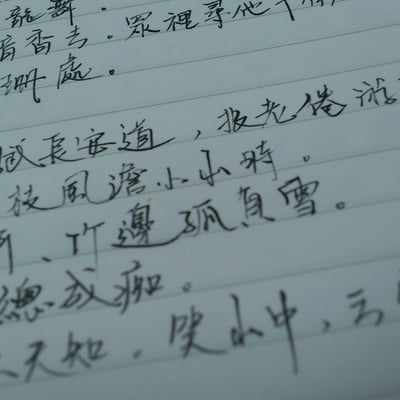 龍舞.
暗香去.眾裡尋他千
珊處。
賦長安道,投老倦游
技風澹小小時。
、竹邊孤負雪。
總成痴。
天知.哭小中,云